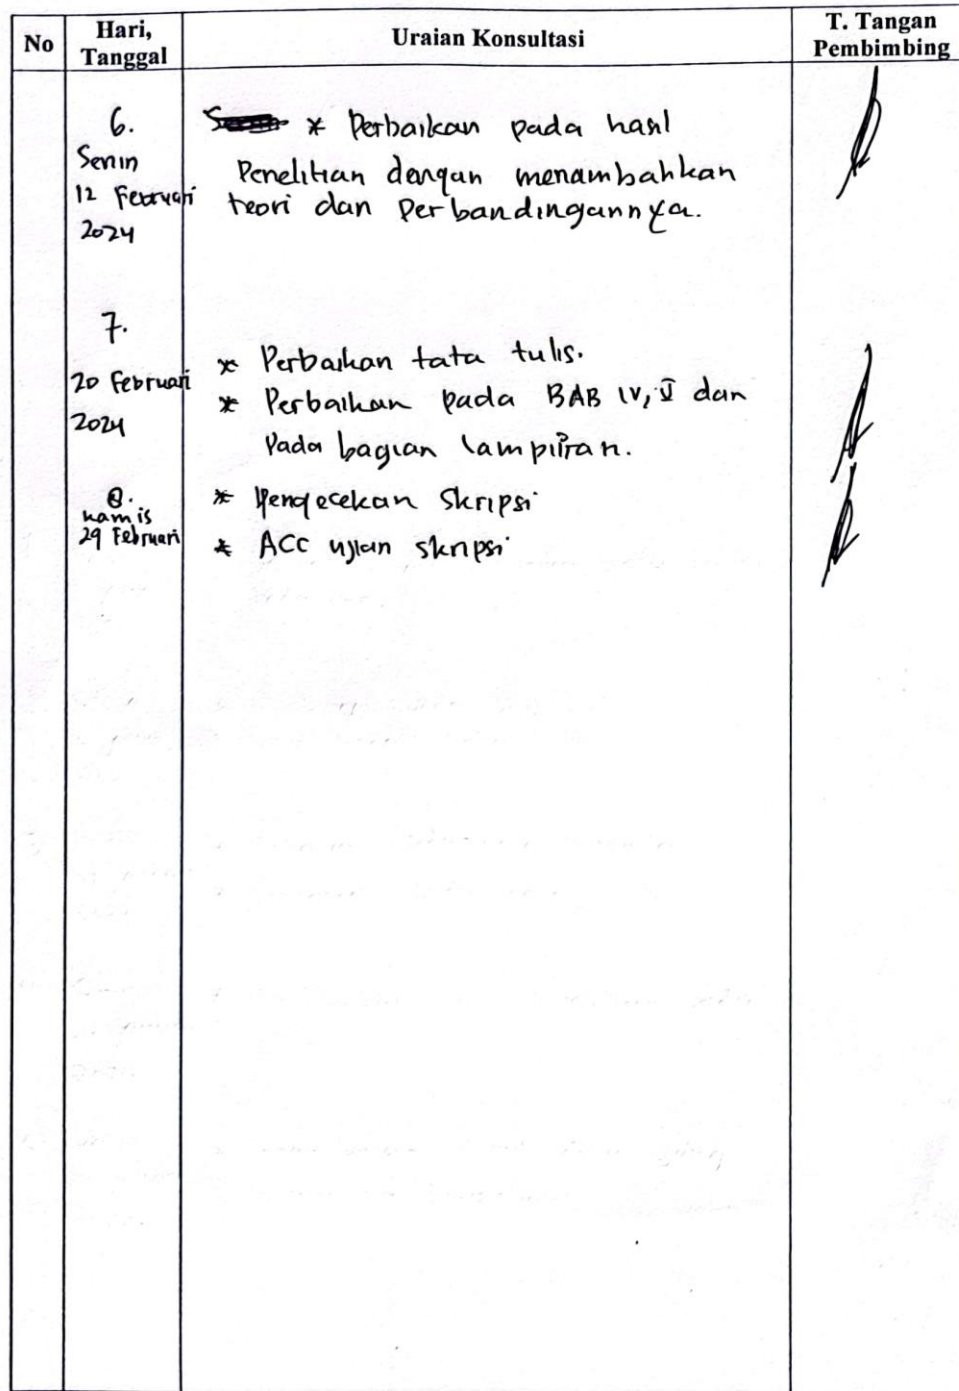 No
Hari,
Tanggal
Uraian Konsultasi
T. Tangan
Pembimbing
6.
Senin
12 Februari
2024
* Perbaikan pada hasil
Penelitian dengan menambahkan
teori dan Perbandingannya.
7.
20 Februari
2024
* Perbaikan tata tulis.
* Perbaikan pada BAB IV, V dan
Pada bagian lampiran.
8.
kamis
29 Februari
* Pengecekan Skripsi
* ACC ujian skripsi